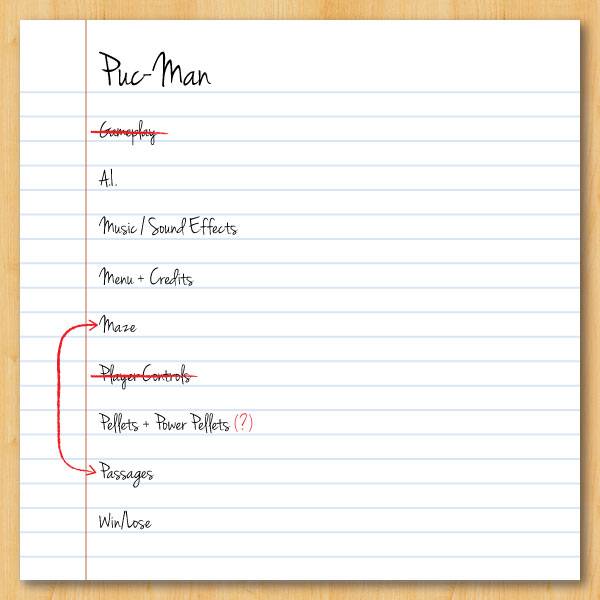 Puc-Man
Gameplay
A.I.
Music / Sound Effects
Menu + Credits
Maze
Player Controls
Pellets + Power Pellets (?)
Passages
Win/Lose